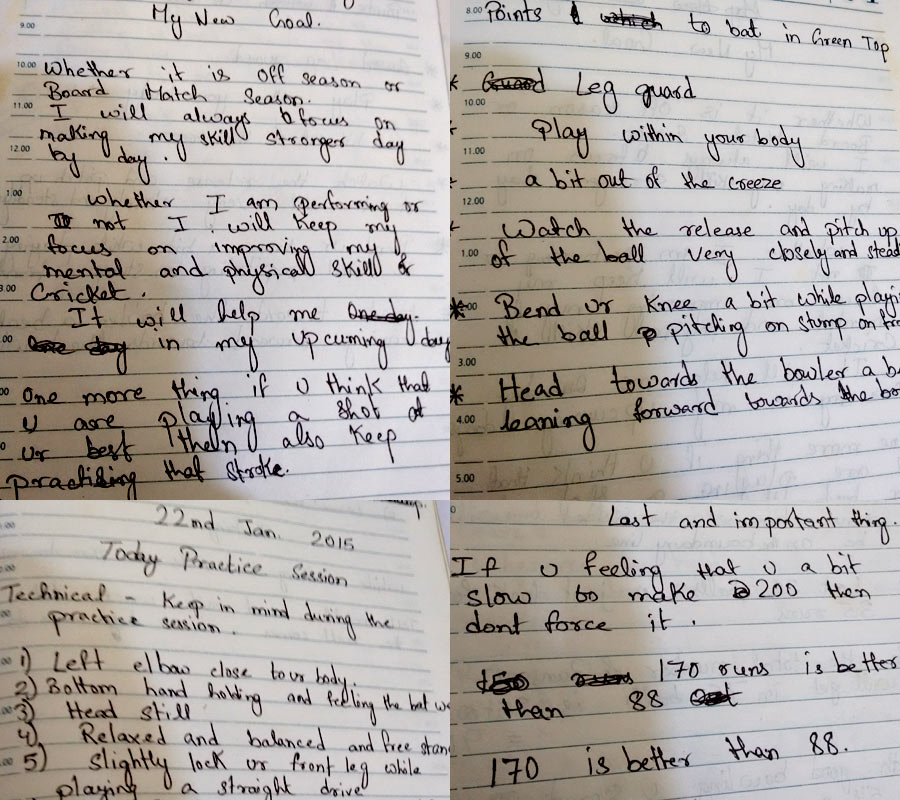 My New Goal.
9.00
10.00
Whether it is off season or
Board Match Season.
11.00
I will always focus on
making my skill stronger day
12.00
by day.
1.00
whether I am performing or
not I will keep my
2.00
focus on improving my
mental and physical skill of
3.00
Cricket.
It will help me
in my upcuming day
One more thing if u think that
u are playing a shot at
ur best then also keep
practising that stroke.
8.00
Points to bat in Green Top
9.00
* Leg guard
10.00
Play within your body
11.00
a bit out of the creeze
12.00
Watch the release and pitch up
1.00
of the ball very closely and
* Bend ur Knee a bit while
the ball pitching on stump on
3.00
* Head towards the bowler a
4.00
leaning forward towards the
5.00
22nd Jan. 2015
Today Practice Session
Technical - Keep in mind during the
practice session.
1) Left elbow close to ur body.
2) Bottom hand holding and feeling the bat
3) Head still
4) Relaxed and balanced and free
5) slightly lock ur front leg while
playing a straight drive
Last and important thing.
If u feeling that u a bit
slow to make 200 then
dont force it.
170 runs is better
than 88
170 is better than 88.